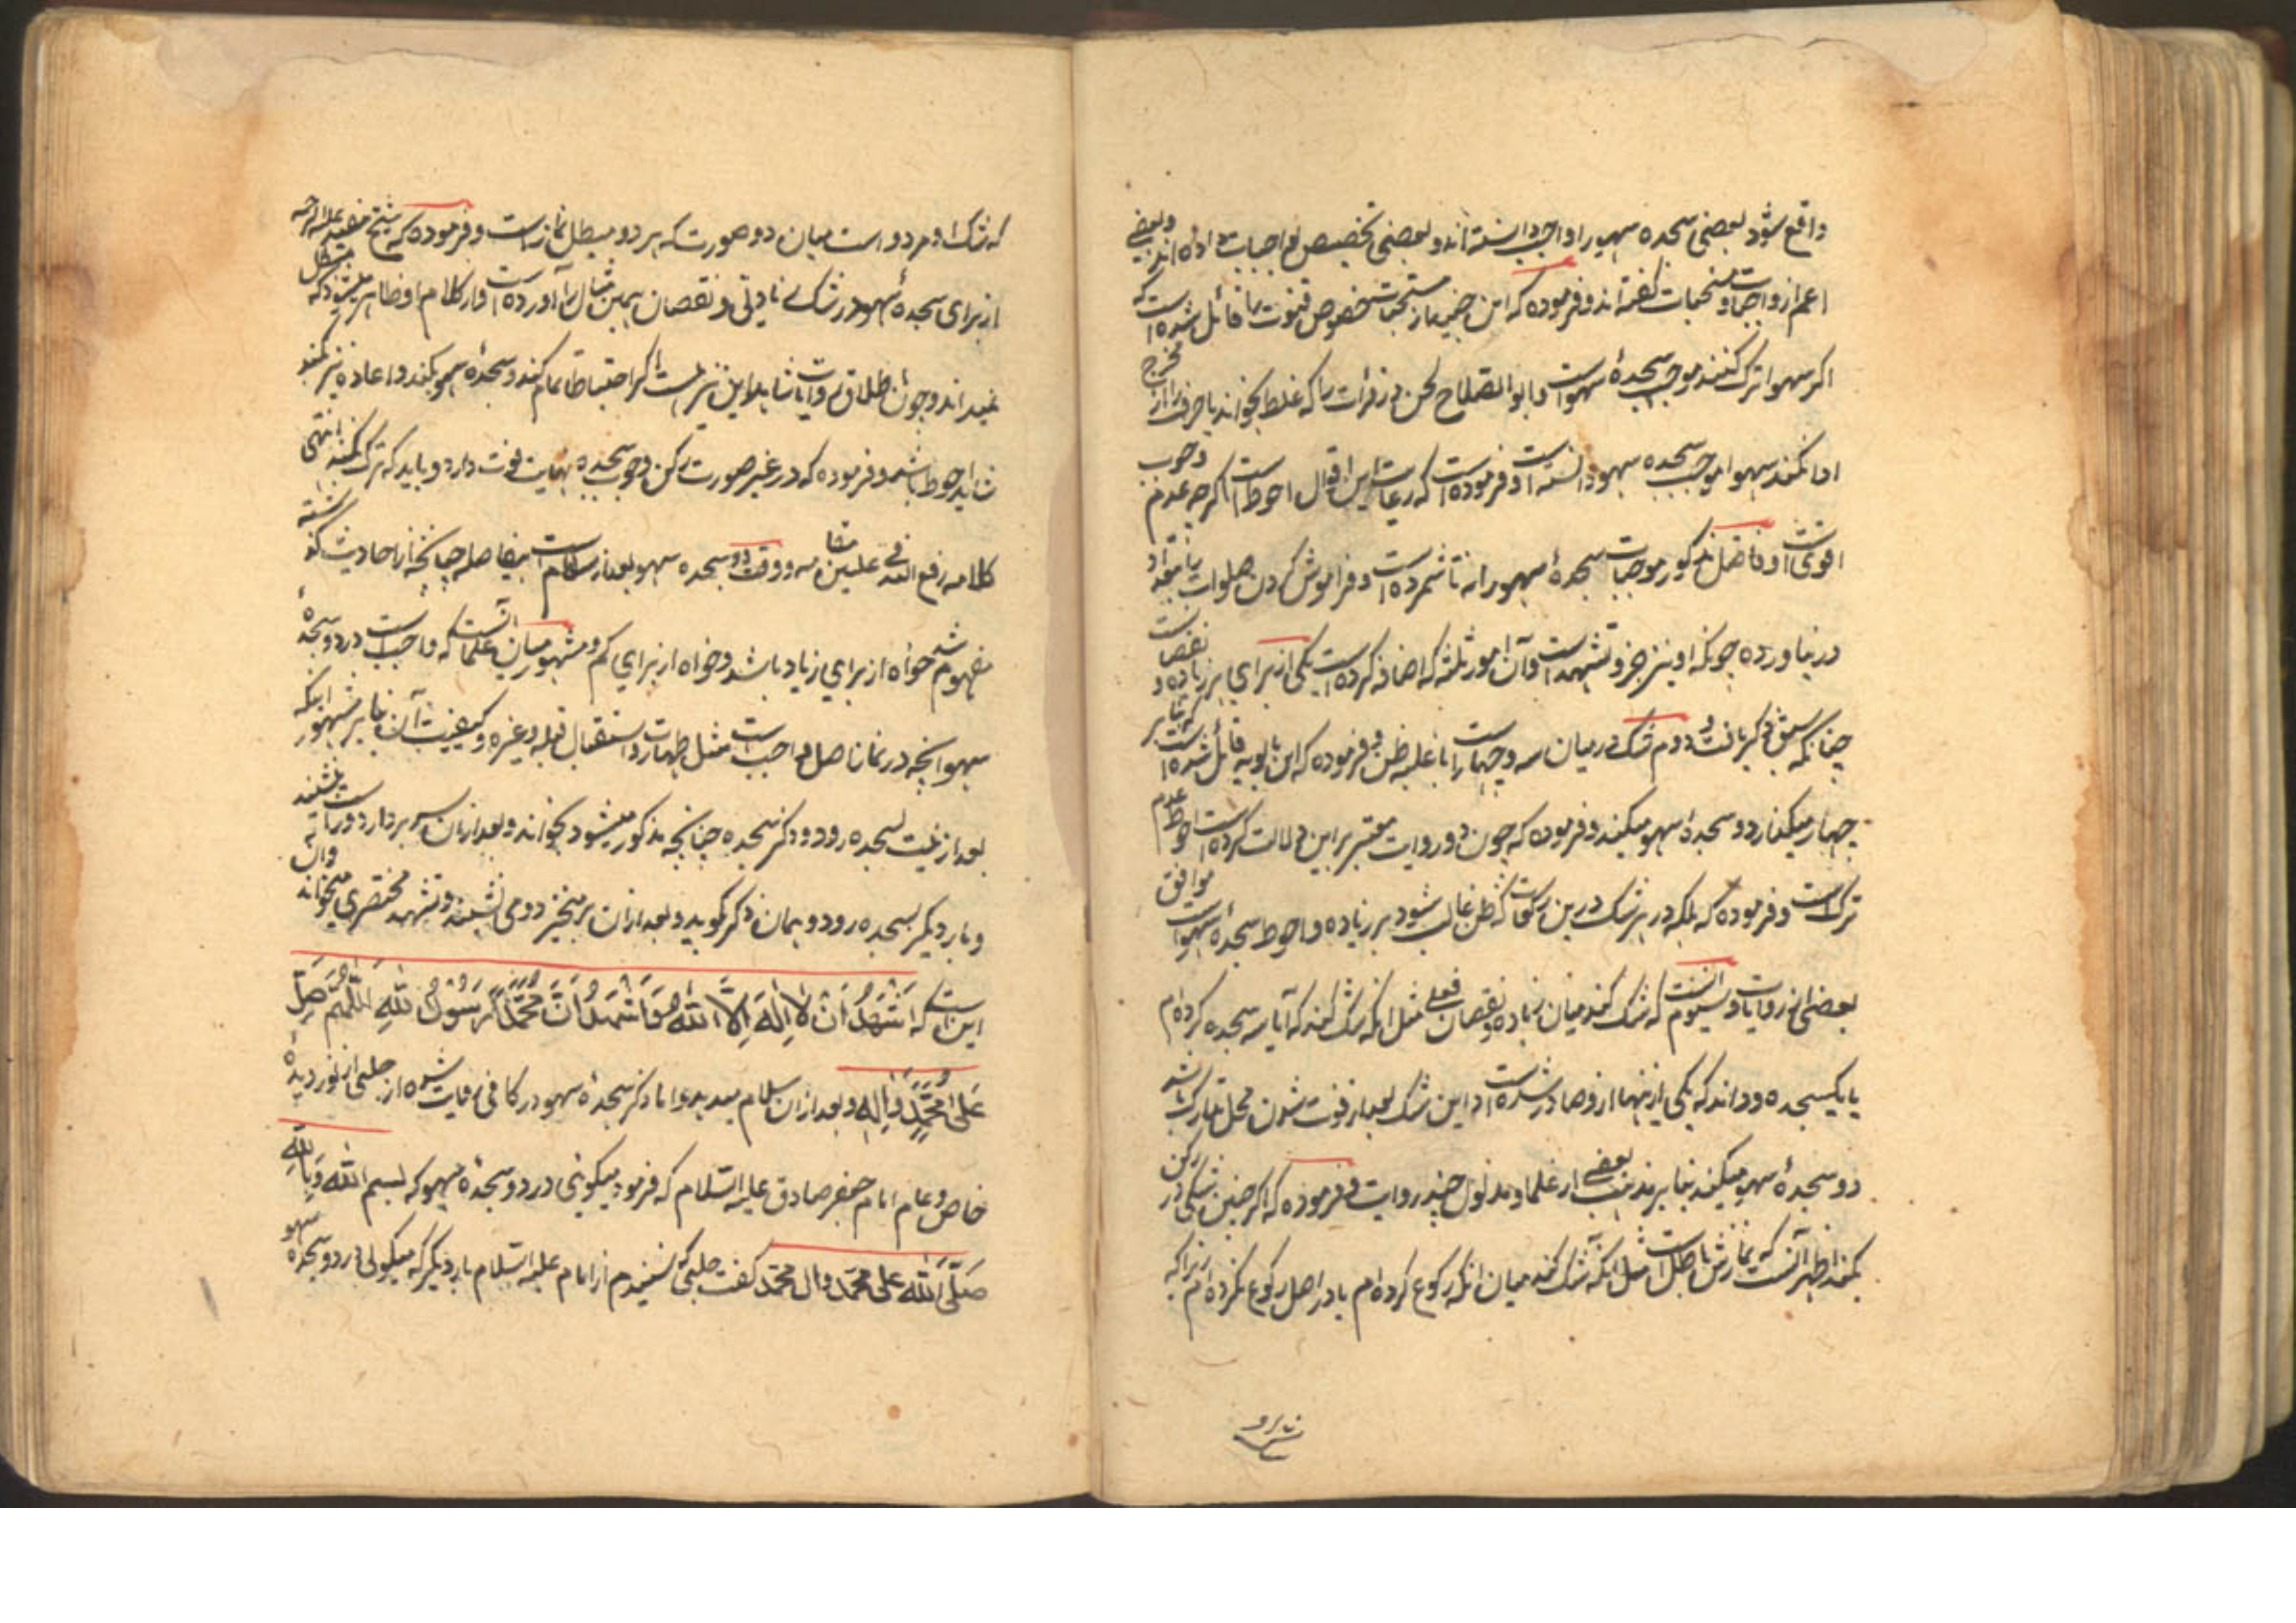 واقع شود بعضی سجده سهو را واجب دانسته‌اند و بعضی تخصیص بواجبات داده‌اند و بعضی
اعم از واجبات و مستحبات گفته‌اند و فرموده که این جنید از مستحبات خصوص قنوت را قائل شده است که
اکر سهوا ترک کنند موجب سجدهٔ سهو است و ابو الصلاح لحن در قرأت را که غلط بخواند یا حرف را از مخرج
ادا نکند سهوا موجب سجده سهو دانسته است و فرموده است که رعایت این اقوال احوط است اکرچه عدم وجوب
اقوی است و فاضل مذکور موجبات سجدهٔ سهو را نه تا شمرده است و فراموش کردن صلوات را بتعداد
در نیاورده چونکه او نیز جزو تشهد است و آن امور ثلثه که اضافه کرده است یکی از برای هر زیاده و نقصان است
چنانکه سبق ذکر یافت و دوم شک در میان سه و چهار است با غلبه ظن و فرموده که ابن بابویه قائل شده است که بنا بر
چهار میکذارد و سجدهٔ سهو میکند و فرموده که چون دو روایت معتبر بر این دلالت کرده است احوط عدم
ترک است و فرموده که بلکه در هر شک درین رکعات که ظن غالب شود بر زیاده و احوط سجدهٔ سهو است موافق
بعضی از روایات و سیوم آنست که شک کند میان زیاده و نقصان فعلی مثل انکه شک کند که آیا سه سجده کرده‌ام
یا یکسجده و داند که یکی از اینها از او صادر شده است و این شک بعد از فوت شدن محل تدارک باشد
دو سجدهٔ سهو میکند بنا بر مذهب بعضی از علما و مدلول چند روایت و فرموده که اکر چنین شکی در رکن
بکند اظهر آنست که نمازش باطل است مثل انکه شک کند میان انکه رکوع کرده‌ام یا در اصل رکوع نکرده‌ام زیرا که
که شک او مردد است میان دو صورت که هر دو مبطل نماز است و فرموده که شیخ مفید علیه الرحمه
از برای سجدهٔ سهو در شک زیادتی و نقصان همین مثال را آورده است و از کلام او ظاهر میشود که مبطل
نمیداند و چون اطلاق روایات شاید این نیز هست اکر احتیاطا تمام کند و سجدهٔ سهو بکند و اعاده نیز بکند
شاید احوط باشد و فرموده که در غیر صورت رکن وجوب سجده نهایت قوت دارد و باید که ترک نکند انتهی
کلامه رفع الله فی علیین مقامه و وقت دو سجده سهو بعد از سلام است بیفاصله چنانچه از احادیث کذشته
مفهوم شد خواه از برای زیاد باشد و خواه از برای کم و مشهور میان علما آنست که واجب است در دو سجدهٔ
سهو انچه در نماز اصل واجب است مثل طهارت و استقبال قبله و غیره و کیفیت آن بنا بر مشهور اینکه
بعد از نیت بسجده رود و ذکر سجده چنانچه مذکور میشود بخواند و بعد از آن سر بردارد و راست بنشیند
و بار دیکر بسجده رود و همان ذکر کوید و بعد از ان برمیخیزد و می‌نشیند و تشهد مختصری میخواند و آن
این است که اَشْهَدُ اَنْ لاٰ اِلٰهَ اِلَّا اللهُ وَاَشْهَدُ اَنَّ مُحَمَّدًا رَسُوْلُ اللهِ اَللّٰهُمَّ صَلِّ
عَلىٰ مُحَمَّدٍ وَاٰلِهِ و بعد از ان سلام میدهد و اما ذکر سجدهٔ سهو در کافی روایت شده از حلبی از نور دیدهٔ
خاص و عام امام جعفر صادق علیه السلام که فرمود میکوئی در دو سجدهٔ سهو که بسم الله وَبِاللهِ
صَلَّى اللهُ على محمّد وال محمّد کفت حلبی که شنیدم از امام علیه السلام بار دیکر که میکوئی در دو سجدهٔ سهو